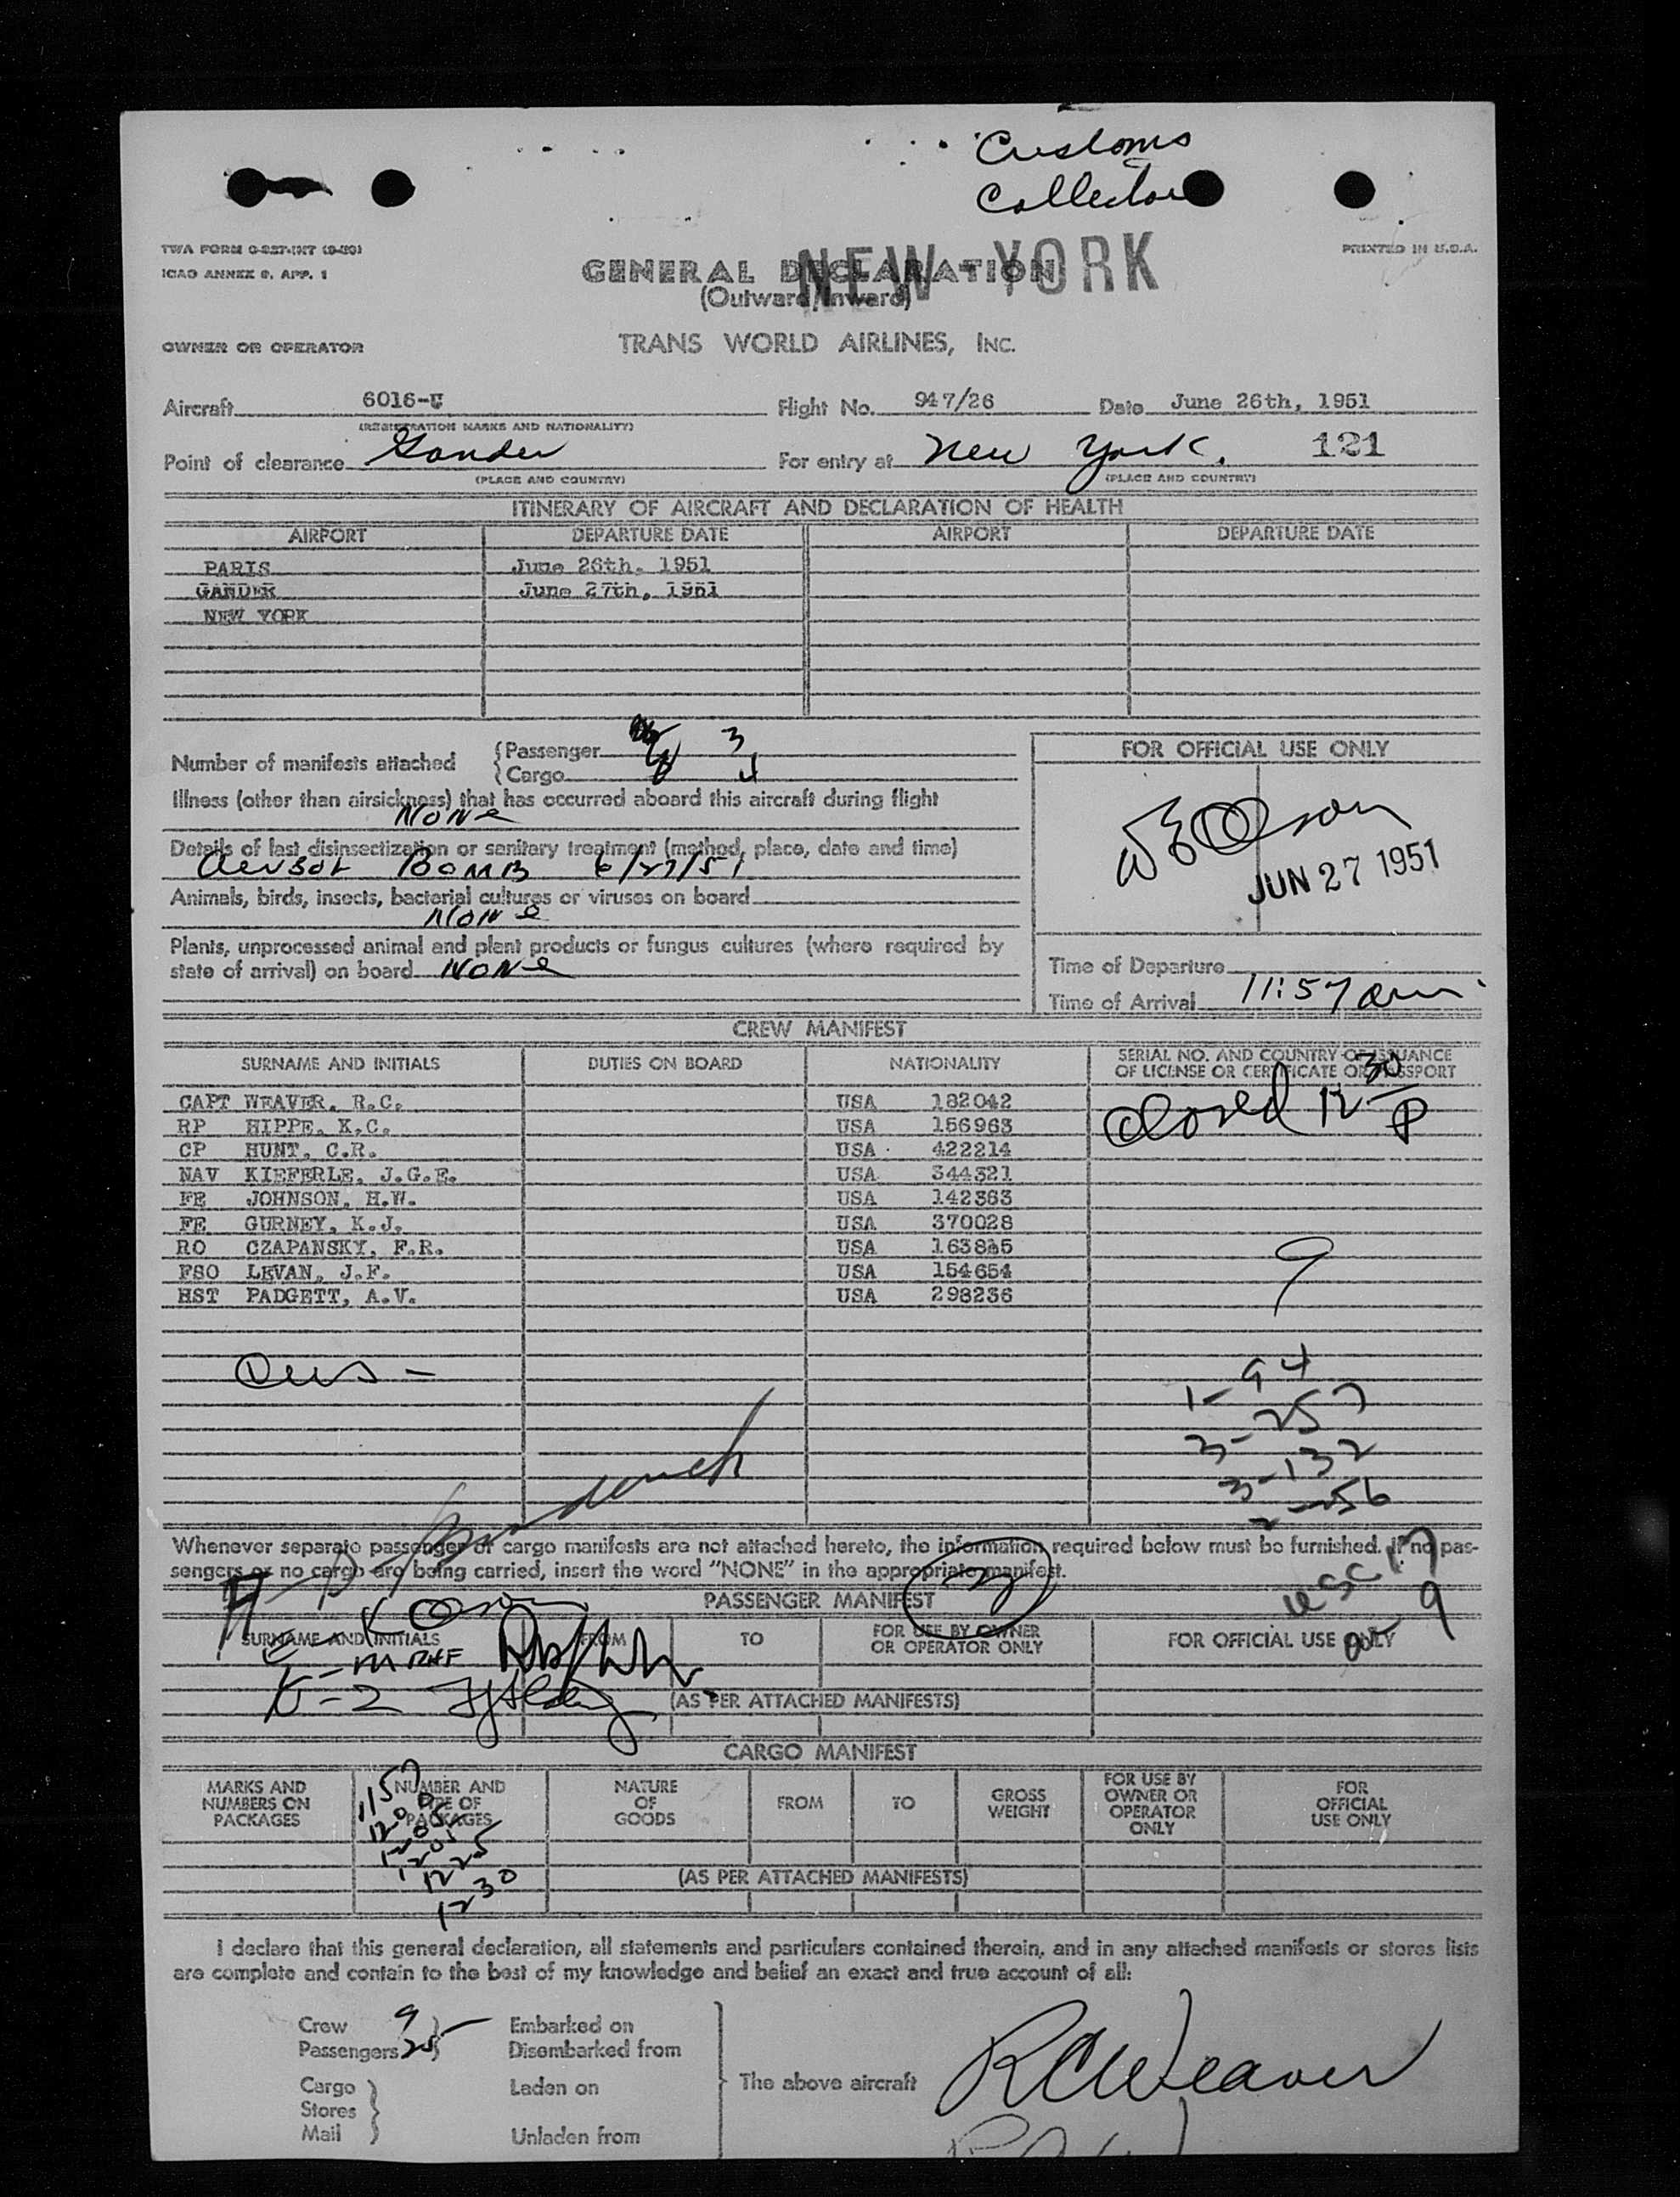 Customs
Collector
TWA FORM O-227-INT (9-50)
PRINTED IN U.S.A.
ICAO ANNEX 9, APP. 1
GENERAL DECLARATION
NEW YORK
(Outward/Inward)
OWNER OR OPERATOR
TRANS WORLD AIRLINES, INC.
Aircraft 6016-C Flight No. 947/26 Date June 26th, 1951
(REGISTRATION MARKS AND NATIONALITY)
Point of clearance Gander For entry at New York. 121
(PLACE AND COUNTRY) (PLACE AND COUNTRY)
ITINERARY OF AIRCRAFT AND DECLARATION OF HEALTH
AIRPORT DEPARTURE DATE AIRPORT DEPARTURE DATE
PARIS June 26th, 1951
GANDER June 27th, 1951
NEW YORK
Number of manifests attached
Passenger 3
Cargo 4
FOR OFFICIAL USE ONLY
Illness (other than airsickness) that has occurred aboard this aircraft during flight
None
Details of last disinsectization or sanitary treatment (method, place, date and time)
Aersol Bomb 6/27/51
JUN 27 1951
Animals, birds, insects, bacterial cultures or viruses on board
None
Plants, unprocessed animal and plant products or fungus cultures (where required by
state of arrival) on board None
Time of Departure
Time of Arrival 11:57 am
CREW MANIFEST
SURNAME AND INITIALS DUTIES ON BOARD NATIONALITY SERIAL NO. AND COUNTRY OF ISSUANCE
OF LICENSE OR CERTIFICATE OR PASSPORT
Closed 12 30 P
CAPT WEAVER, R.C. USA 182042
RP HIPPE, K.C. USA 156963
CP HUNT, C.R. USA 422214
NAV KIEFERLE, J.G.E. USA 344321
FE JOHNSON, H.W. USA 142363
FE GURNEY, K.J. USA 370028
RO CZAPANSKY, F.R. USA 163845
FSO LEVAN, J.F. USA 154654
HST PADGETT, A.V. USA 298236
9
1-94
3-257
3-132
2-256
Whenever separate passenger or cargo manifests are not attached hereto, the information required below must be furnished. If no pas-
sengers or no cargo are being carried, insert the word "NONE" in the appropriate manifest.
USC 17
9
PASSENGER MANIFEST
SURNAME AND INITIALS FROM TO FOR USE BY OWNER
OR OPERATOR ONLY FOR OFFICIAL USE ONLY
(AS PER ATTACHED MANIFESTS)
CARGO MANIFEST
MARKS AND
NUMBERS ON
PACKAGES
NUMBER AND
TYPE OF
PACKAGES
NATURE
OF
GOODS
FROM
TO
GROSS
WEIGHT
FOR USE BY
OWNER OR
OPERATOR
ONLY
FOR
OFFICIAL
USE ONLY
1157
1200
1205
1205
1225
1230
(AS PER ATTACHED MANIFESTS)
I declare that this general declaration, all statements and particulars contained therein, and in any attached manifests or stores lists
are complete and contain to the best of my knowledge and belief an exact and true account of all:
Crew 9 Embarked on
Passengers 25 Disembarked from
Cargo Laden on
Stores
Mail Unladen from
The above aircraft RCWeaver